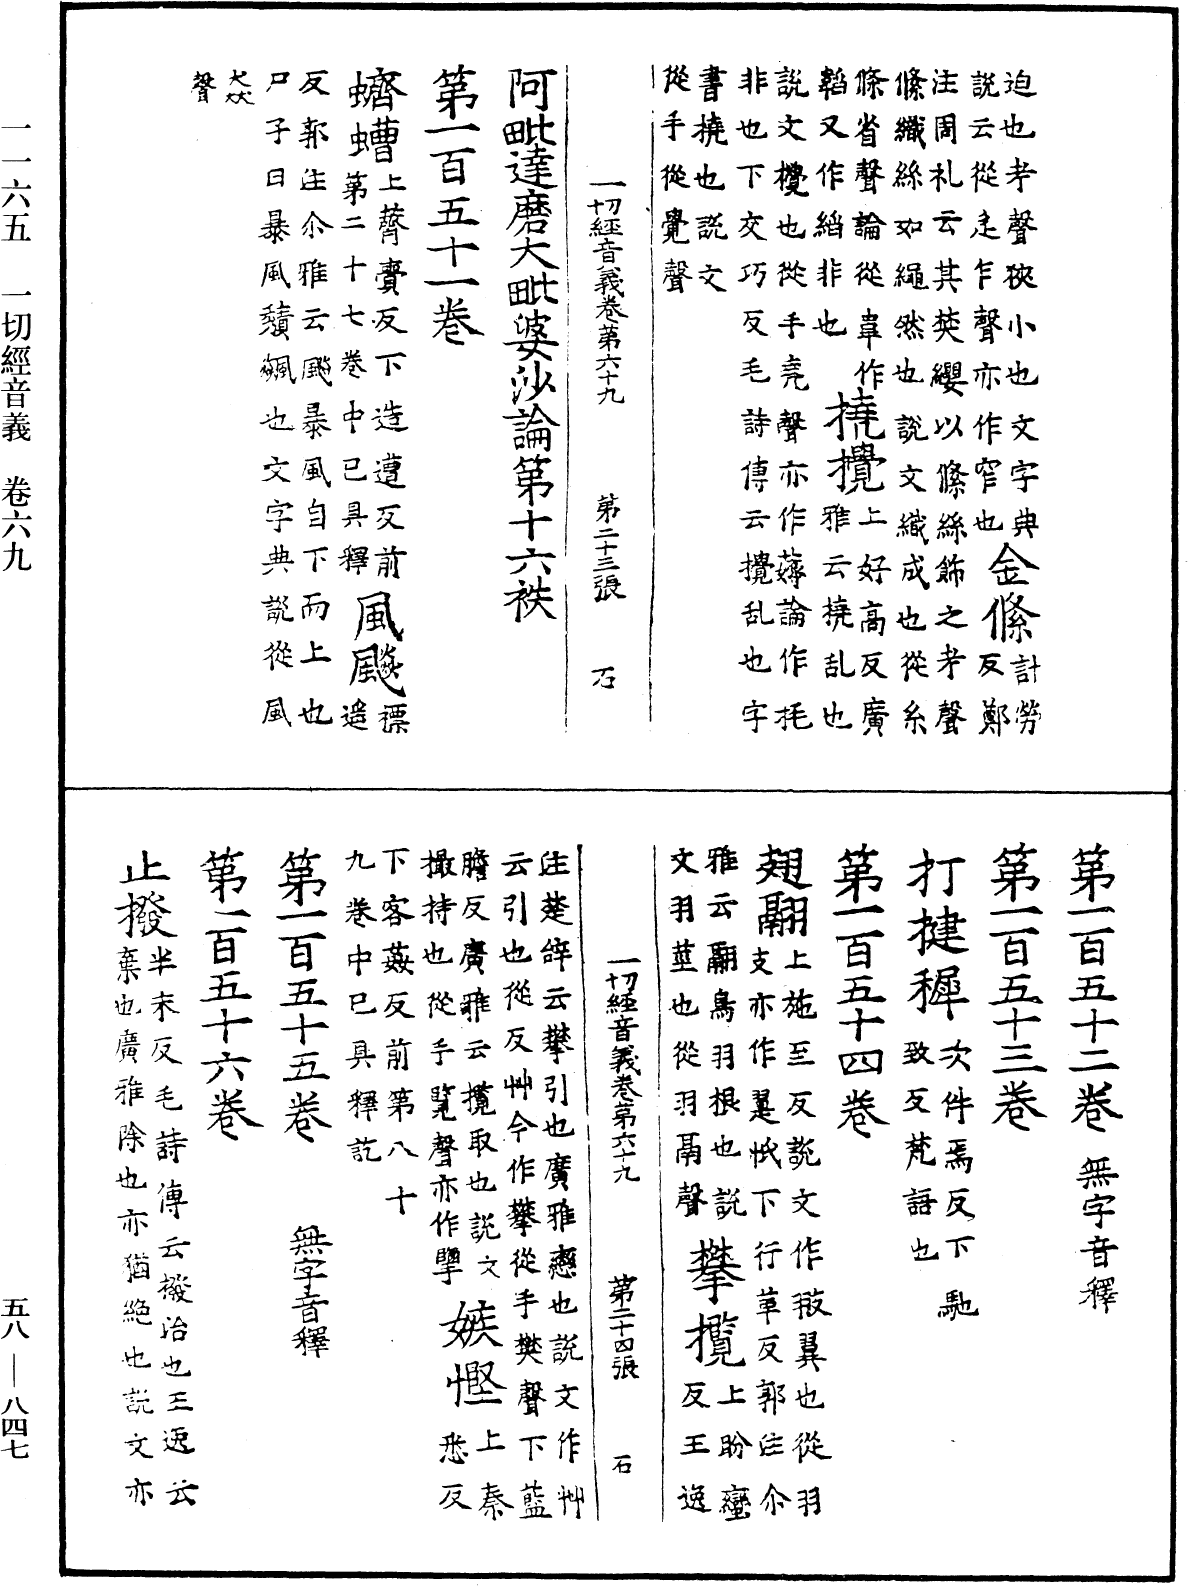 迫也考聲狹小也文字典
說云從辵乍聲亦作窄也
金絛
計勞反鄭
注周礼云其樊纓以絛絲飾之考聲
絛織絲如繩然也說文織成也從糸
條省聲論從韋作
韜又作縚非也
撓攪
上好高反廣
雅云撓乱也
說文攪也從手堯聲亦作薅論作抚
非也下交巧反毛詩傳云攪乱也字
書撓也說文
從手從覺聲
一切經音義卷第六十九 第二十三張 石
阿毗達磨大毗婆沙論第十六袟
第一百五十一卷
蠐螬
上薺賷反下造遭反前
第二十七卷中已具釋
風飈
褾遥
反郭注尒雅云飈暴風自下而上也
尸子曰暴風頹飈也文字典說從風
猋聲
第一百五十二卷 無字音釋
第一百五十三卷
打揵稺
次件焉反下馳
致反梵語也
第一百五十四卷
翅翮
上施至反說文作翄翼也從羽
支亦作翼忯下行革反郭注尒
雅云翮鳥羽根也說
文羽莖也從羽鬲聲
攀攬
上盼蠻
反王逸
一切經音義卷第六十九 第二十四張 石
注楚辝云攀引也廣雅戀也說文作艸
云引也從反艸今作攀從手樊聲下藍
膽反廣雅云攬取也說文
撮持也從手覽聲亦作擥
嫉慳
上秦
悉反
下客姦反前第八十
九卷中已具釋訖
第一百五十五卷 無字音釋
第一百五十六卷
止撥
半末反毛詩傳云撥治也王逸云
棄也廣雅除也亦猶絶也說文亦
一一六五 一切經音義 卷六九
五八—八四七